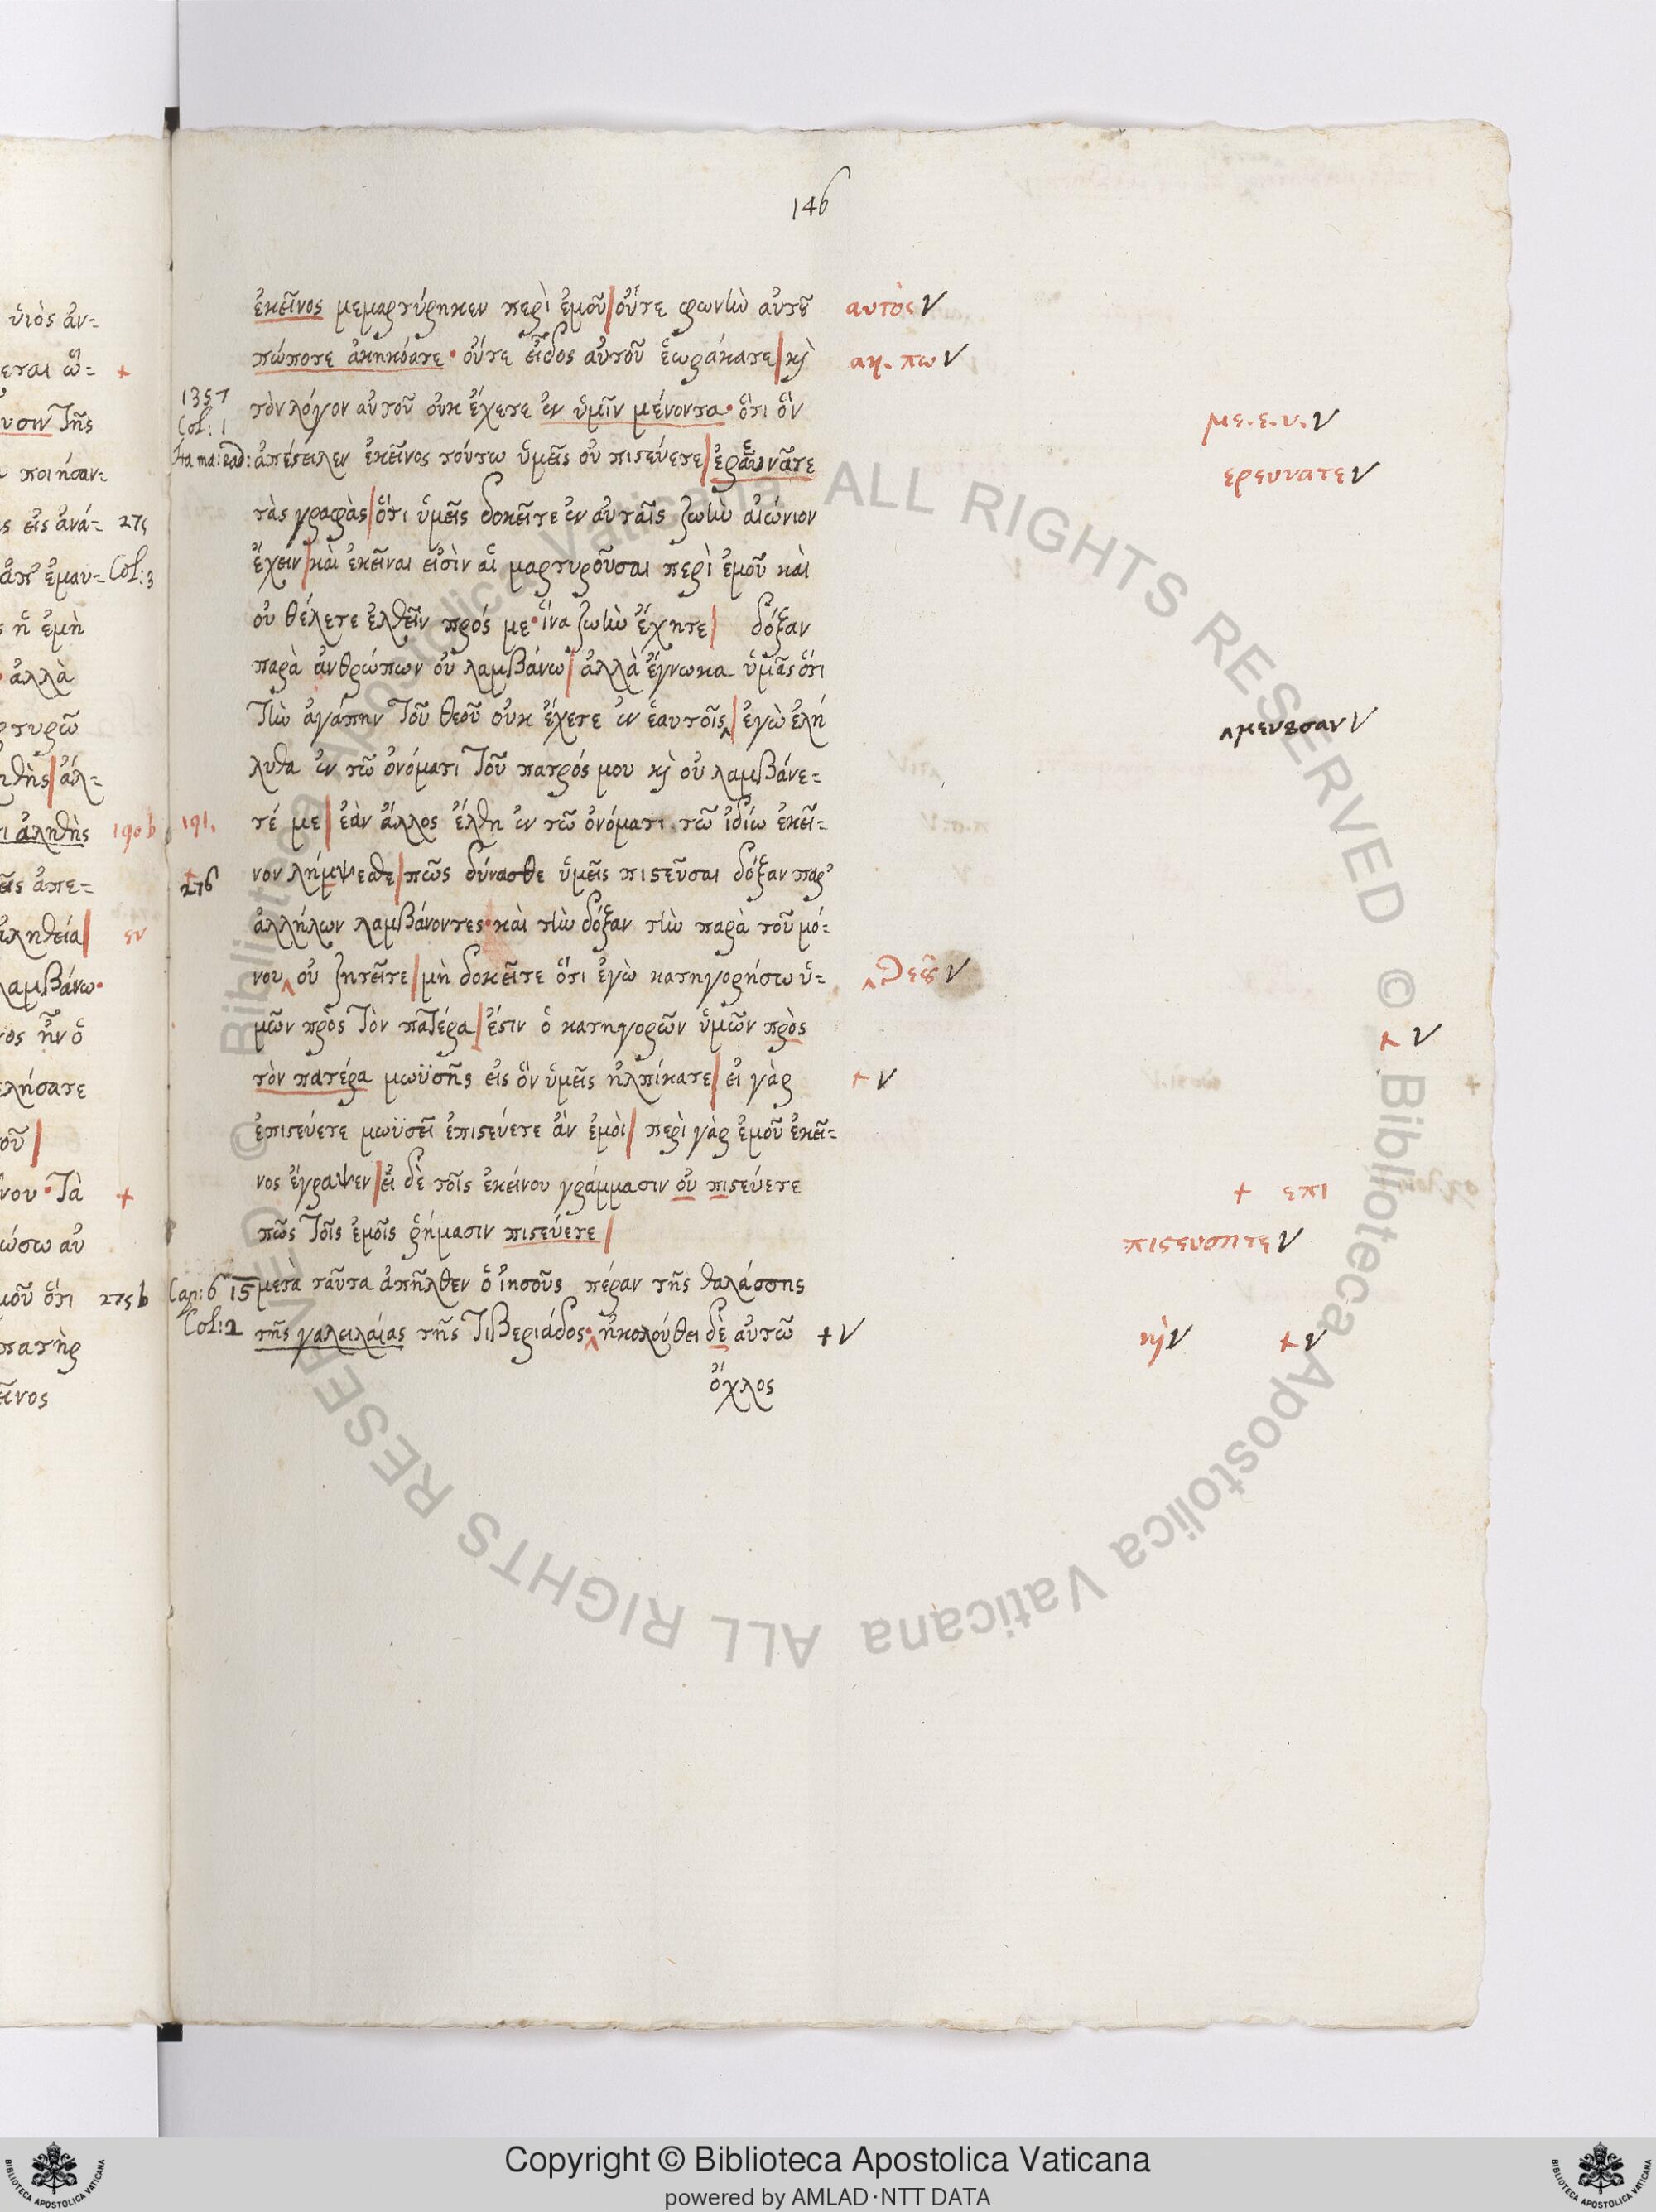 146
ἐκεῖνος μεμαρτύρηκεν περὶ ἐμοῦ| οὔτε φωνὴν αὐτοῦ αυτὸς ν
πώποτε ἀκηκόατε· οὔτε εἶδος αὐτοῦ ἑωράκατε| κὶ ακ. πω ν
1357 τὸν λόγον αὐτοῦ οὐκ ἔχετε ἐν ὑμῖν μένοντα· ὅτι ὃν με. ε. υ. ν
Col: 1
ἀπέστειλεν ἐκεῖνος τούτω ὑμεῖς οὐ πιστεύετε| ἐραυνᾶτε ερευνατε ν
τὰς γραφὰς| ὅτι ὑμεῖς δοκεῖτε ἐν αὐταῖς ζωὴν αἰώνιον
ἔχειν| καὶ ἐκεῖναι εἰσὶν αἱ μαρτυροῦσαι περὶ ἐμοῦ καὶ
οὐ θέλετε ἐλθεῖν πρός με· ἵνα ζωὴν ἔχητε| δόξαν
παρὰ ἀνθρώπων οὐ λαμβάνω| ἀλλὰ ἔγνωκα ὑμᾶς ὅτι
τὴν ἀγάπην τοῦ θεοῦ οὐκ ἔχετε ἐν ἑαυτοῖς‸| ἐγὼ ἐλή ‸μενουσαν ν
λυθα ἐν τῶ ὀνόματι τοῦ πατρός μου κὶ οὐ λαμβάνε=
191. τέ με| ἐὰν ἄλλος ἔλθη ἐν τῶ ὀνόματι τῶ ἰδίω ἐκεῖ=
+ 276 νον λήμψεσθε| πῶς δύνασθε ὑμεῖς πιστεῦσαι δόξαν παρ'
ἀλλήλων λαμβάνοντες· καὶ τὴν δόξαν τὴν παρὰ τοῦ μό=
νου‸ οὐ ζητεῖτε| μὴ δοκεῖτε ὅτι ἐγὼ κατηγορήσω ὑ= ‸Θεοῦ ν
μῶν πρὸς τὸν πατέρα| ἔστιν ὁ κατηγορῶν ὑμῶν πρὸς + ν
τὸν πατέρα μωϋσῆς εἰς ὃν ὑμεῖς ἠλπίκατε| εἰ γὰρ + ν
ἐπιστεύετε μωϋσεῖ ἐπιστεύετε ἂν ἐμοὶ| περὶ γὰρ ἐμοῦ ἐκεῖ=
νος ἔγραψεν| εἰ δὲ τοῖς ἐκείνου γράμμασιν οὐ πιστεύετε + επι
πῶς τοῖς ἐμοῖς ῥήμασιν πιστεύετε| πιστευσητε ν
Cap: 6 15 μετὰ ταῦτα ἀπῆλθεν ὁ ἰησοῦς πέραν τῆς θαλάσσης
Col: 2 τῆς γαλειλαίας τῆς Τιβεριάδος·‸ ἠκολούθει δὲ αὐτῶ + ν κὶ ν + ν
ὄχλος
ὑιὸς ἀν=
εται ὥ= +
υσιν τῆς
ποιήσαν=
ς εἰς ἀνά= 275
ἀπ' ἐμαυ= Col: 3
ς ἡ ἐμὴ
· ἀλλὰ
ρτυρῶ
ηθὴς| ἀλ=
ι ἀληθὴς 190 b
εῖς ἀπε=
ἀληθεία| εν
λαμβάνω·
νος ἦν ὁ
ελήσατε
οῦ|
νου· τὰ +
ώσω αὐ
μοῦ ὅτι 275 b
πατὴρ
εῖνος
© Biblioteca Apostolica Vaticana ALL RIGHTS RESERVED © Biblioteca Apostolica Vaticana ALL RIGHTS RESERVED
Copyright © Biblioteca Apostolica Vaticana
powered by AMLAD·NTT DATA
BIBLIOTECA APOSTOLICA VATICANA
BIBLIOTECA APOSTOLICA VATICANA